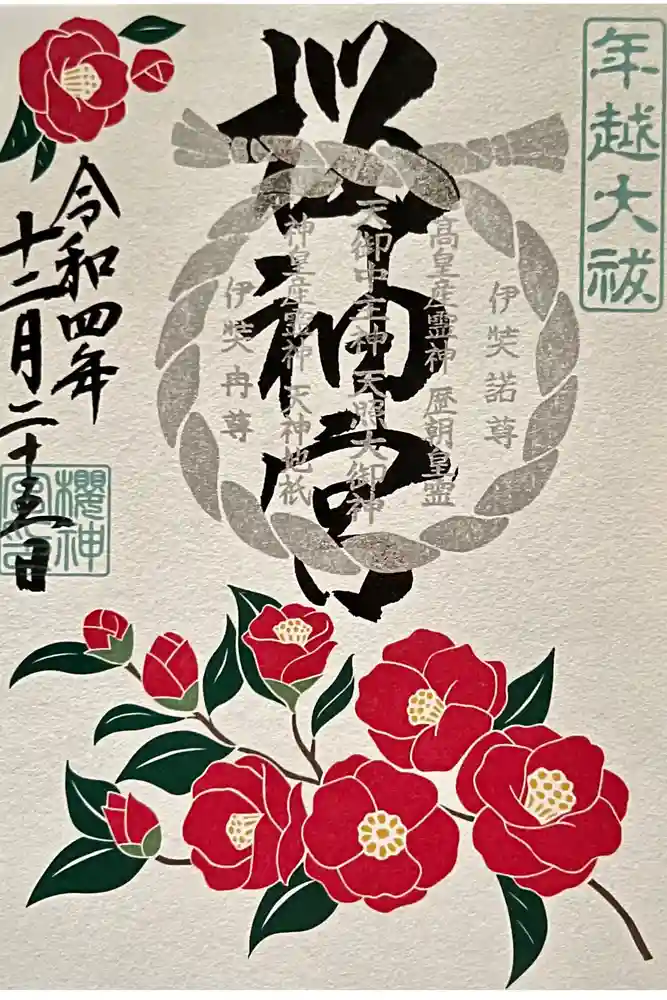 年越大祓
桜神宮
伊奘諾尊
高皇産霊神 歴朝皇霊
天御中主神 天照大御神
神皇産霊神 天神地祇
伊奘冉尊
令和四年
十二月二十五日
櫻神
宮